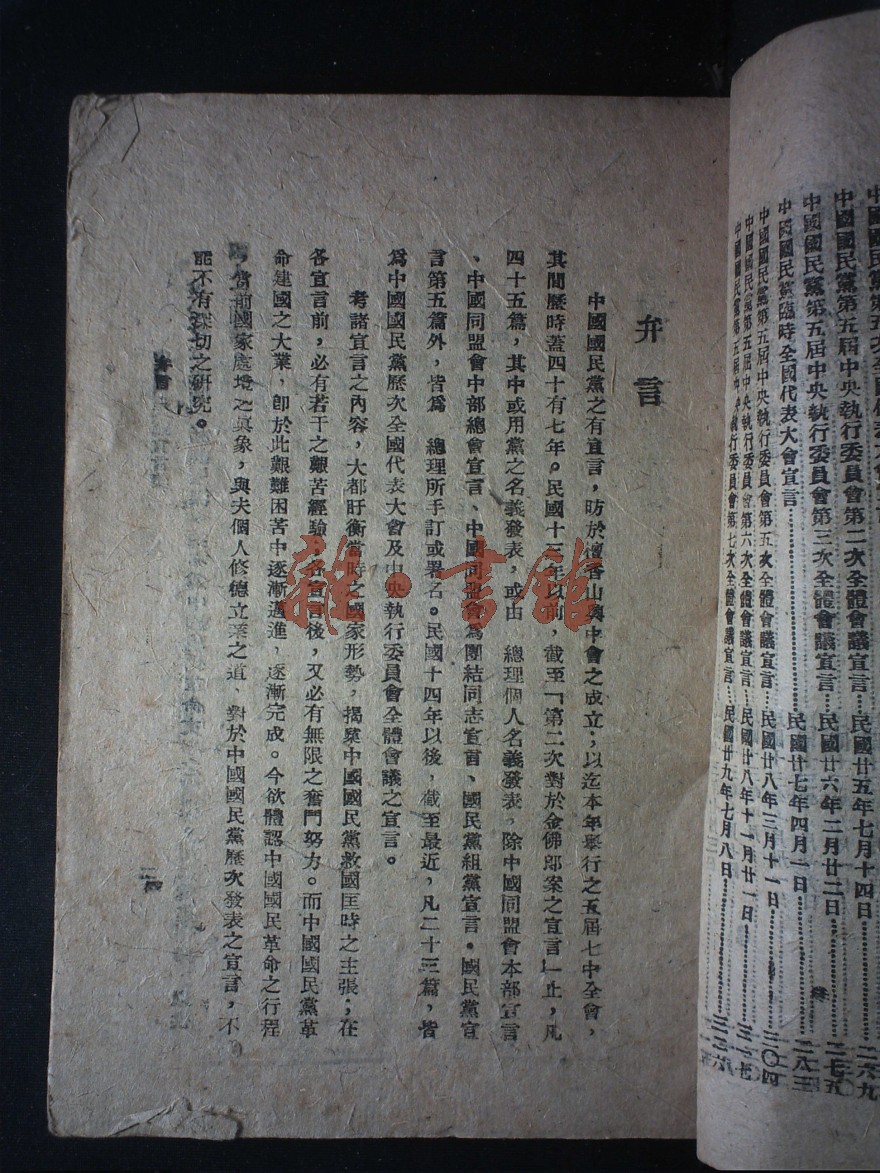 中國國民黨第五屆中央執行委員會第二次全體會議宣言…民國廿五年七月十四日………二六九
中國國民黨第五屆中央執行委員會第三次全體會議宣言…民國廿六年二月廿二日………二七五
中國國民黨臨時全國代表大會宣言………民國廿七年四月一日………二八三
中國國民黨第五屆中央執行委員會第五次全體會議宣言…民國廿八年三月十一日………三〇四
中國國民黨第五屆中央執行委員會第六次全體會議宣言…民國廿八年十一月廿一日………三一七
中國國民黨第五屆中央執行委員會第七次全體會議宣言…民國廿九年七月八日………三二六
弁言
中國國民黨之有宣言，昉於檀香山興中會之成立；以迄本年舉行之五屆七中全會，
其間歷時蓋四十有七年。民國十三年以前，截至「第二次對於金佛郎案之宣言」止，凡
四十五篇，其中或用黨之名義發表，或由　總理個人名義發表，除中國同盟會本部宣言
、中國同盟會中部總會宣言、中國同盟會為團結同志宣言、國民黨組黨宣言。國民黨宣
言第五篇外，皆爲　總理所手訂或署名。民國十四年以後，截至最近，凡二十三篇，皆
爲中國國民黨歷次全國代表大會及中央執行委員會全體會議之宣言。
考諸宣言之內容，大都盱衡當時之國家形勢，揭櫫中國國民黨救國匡時之主張；在
各宣言前，必有若干之艱苦經驗；各宣言後，又必有無限之奮鬥努力。而中國國民黨革
命建國之大業，卽於此艱難困苦中逐漸邁進，逐漸完成。今欲體認中國國民革命之行程
，當前國家處境之眞象，與夫個人修德立業之道，對於中國國民黨歷次發表之宣言，不
能不有深切之研究。
雜·書館